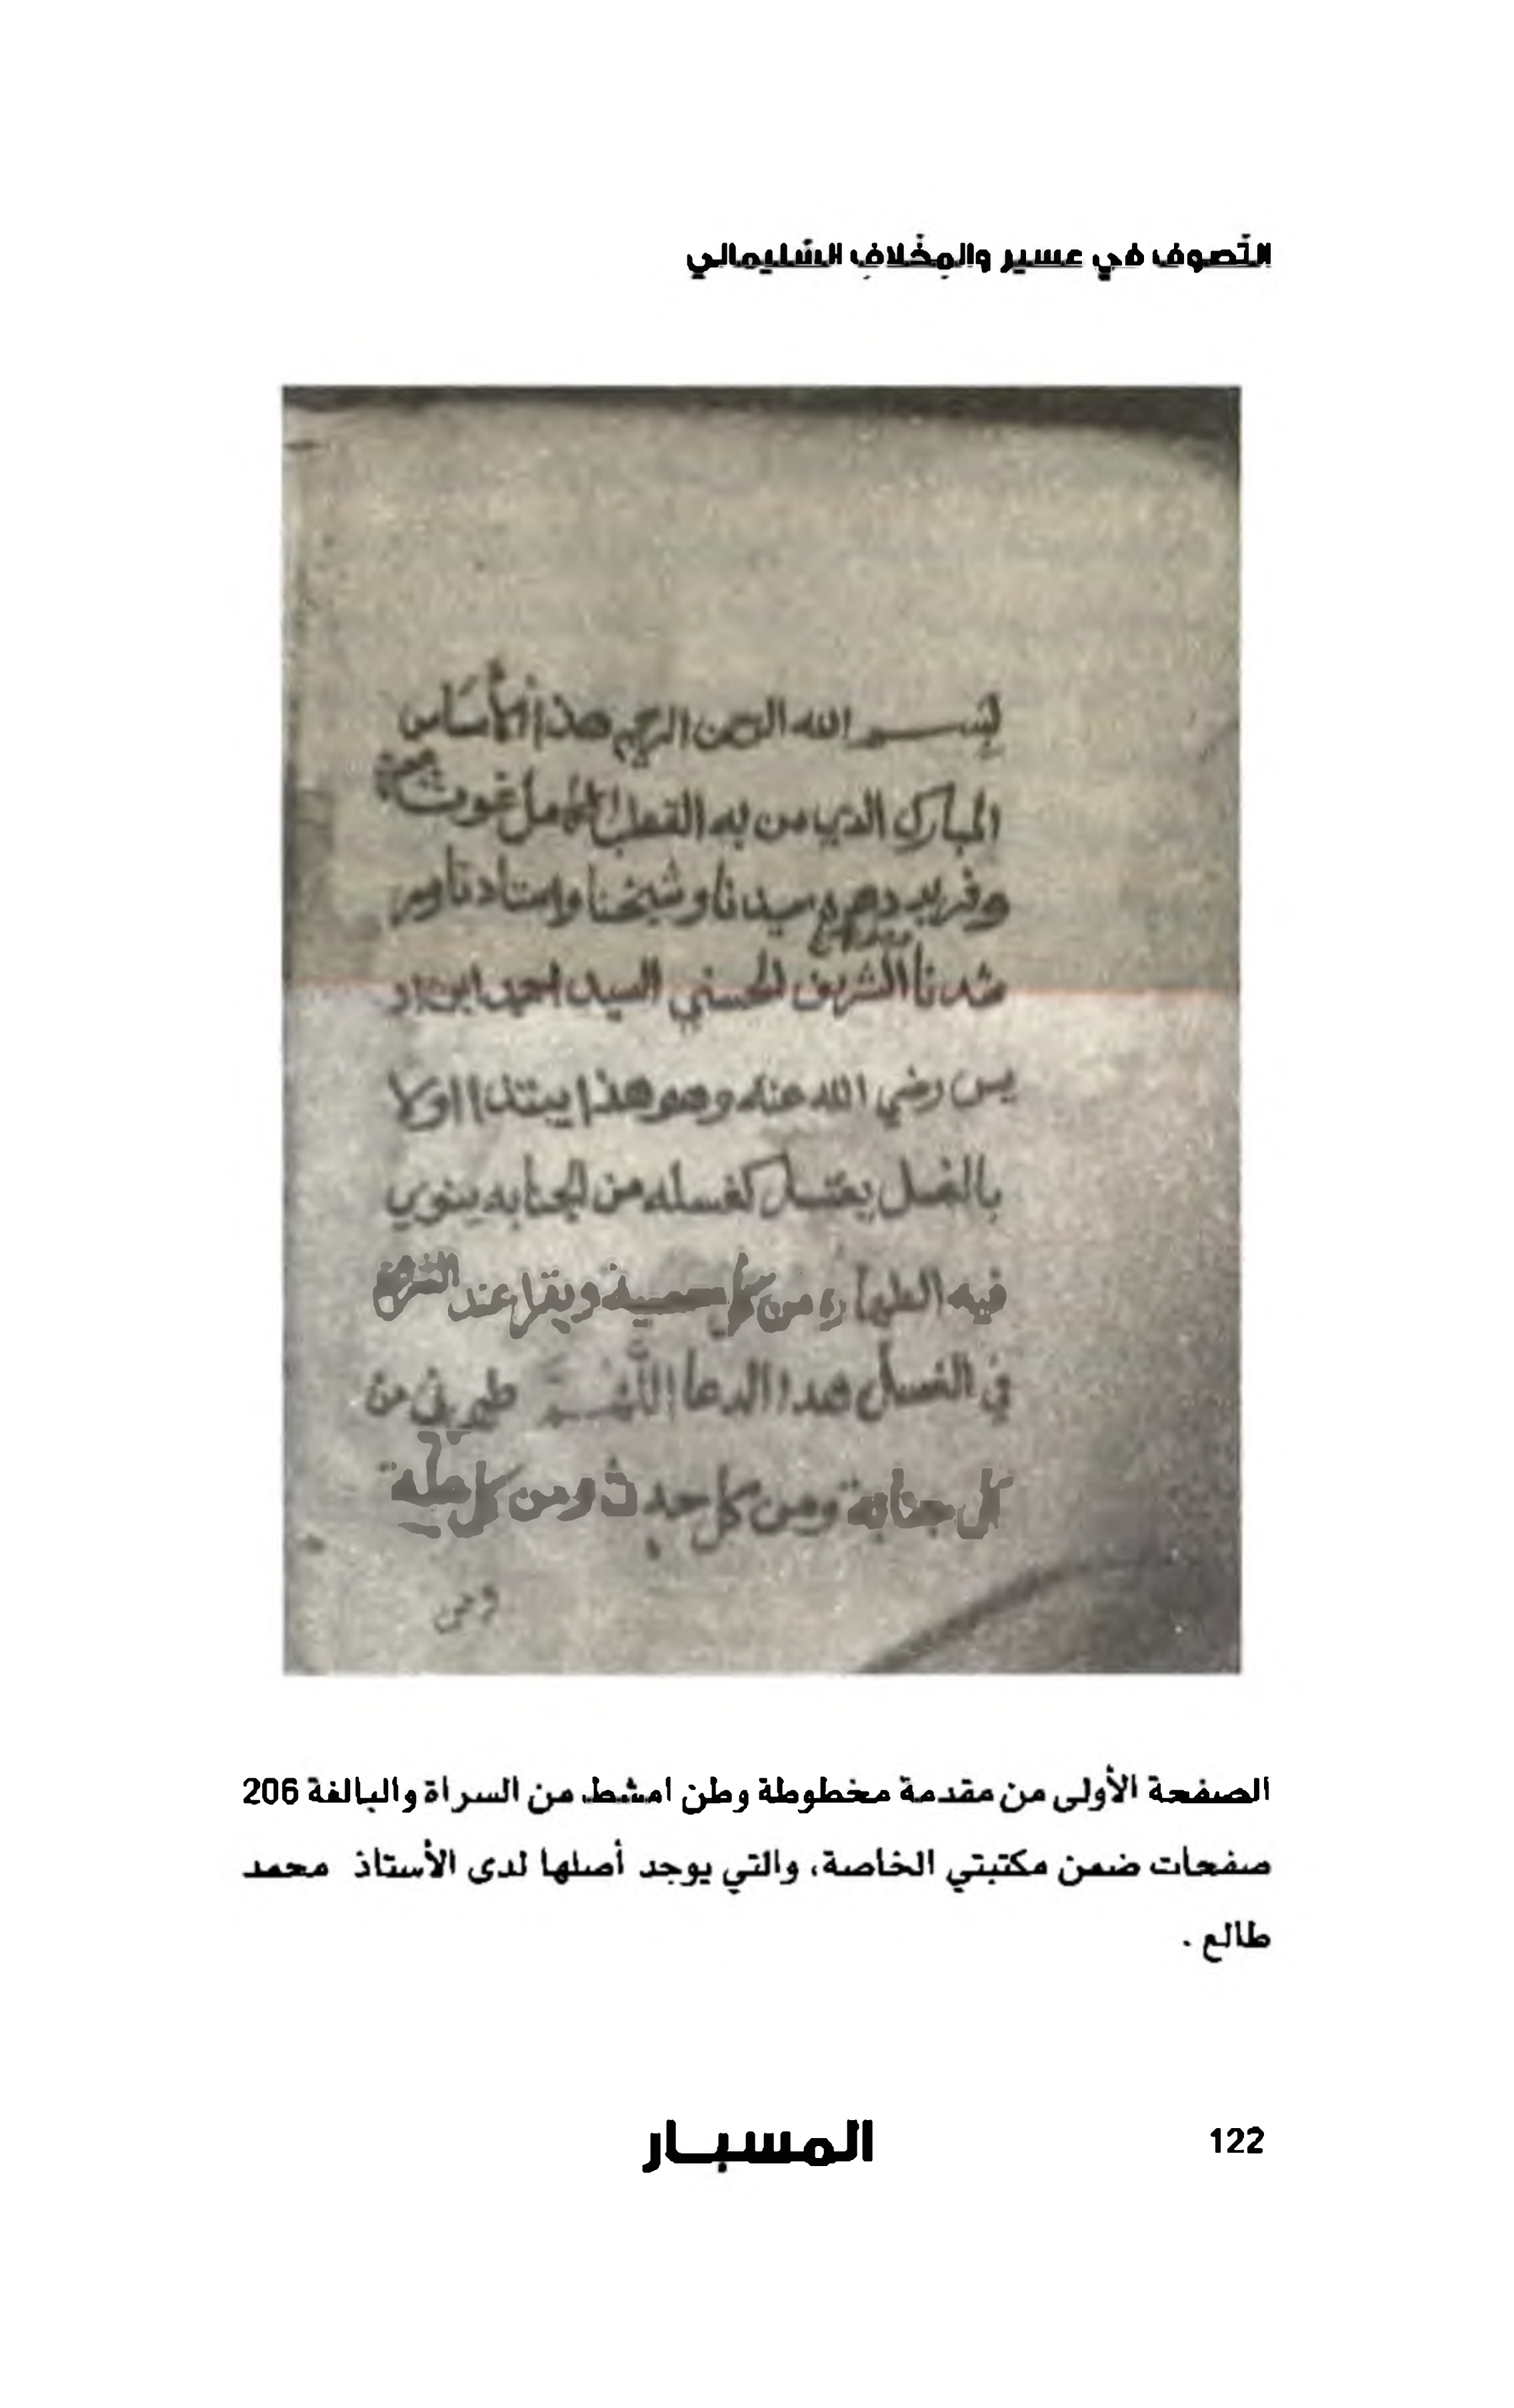 التّصوف في عسير والمِخْلافِ السُّليماني
بسم الله الرحمن الرحيم هذا الأساس
المبارك الذي من به القطب الكامل غوث
وفريد دهره سيدنا وشيخنا واستادنا ومر
شدنا الشريف الحسني السيد احمد ابن ادر
يس رضي الله عنه وهو هذا يبتدا اولا
بالغسل يغتسل كغسله من الجنابه ينوي
فيه الطهارة من كل معصية ويقرا عند الشروع
في الغسل هدا الدعا اللهم طهرني من
كل جنابة ومن كل حدث ومن كل علة
ومن
الصفحة الأولى من مقدمة مخطوطة وطن امشط من السراة والبالغة 206
صفحات ضمن مكتبتي الخاصة، والتي يوجد أصلها لدى الأستاذ محمد
طالع .
المسبار
122